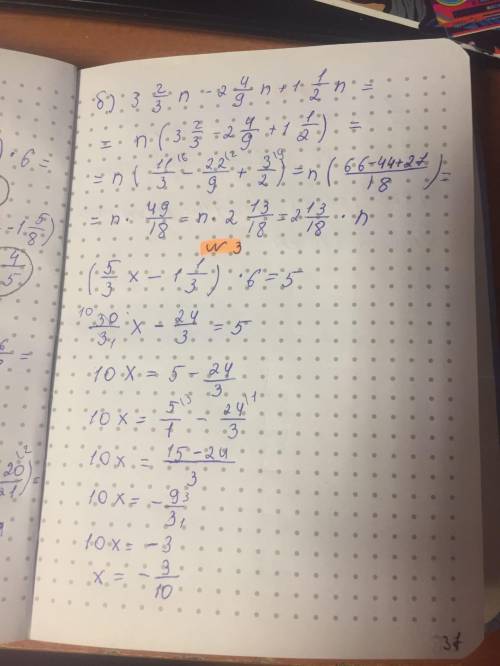 б) 3 2/3 n - 2 4/9 n + 1 1/2 n =
= n (3 2/3 - 2 4/9 + 1 1/2) =
= n (11/3 \6 - 22/9 \2 + 3/2 \9) = n (66-44+27/18) =
= n · 49/18 = n · 2 13/18 = 2 13/18 · n
N 3
(5/3 x - 1 1/3) · 6 = 5
10 30/3 1 x - 24/3 = 5
10x = 5 - 24/3
10x = 5/1 \3 - 24/3 \1
10x = 15-24/3
10x = - 9 3/3 1
10x = -3
x = - 3/10
) · 6 =
- 1 5/8)
4/5
=
20/21 \2) =
37